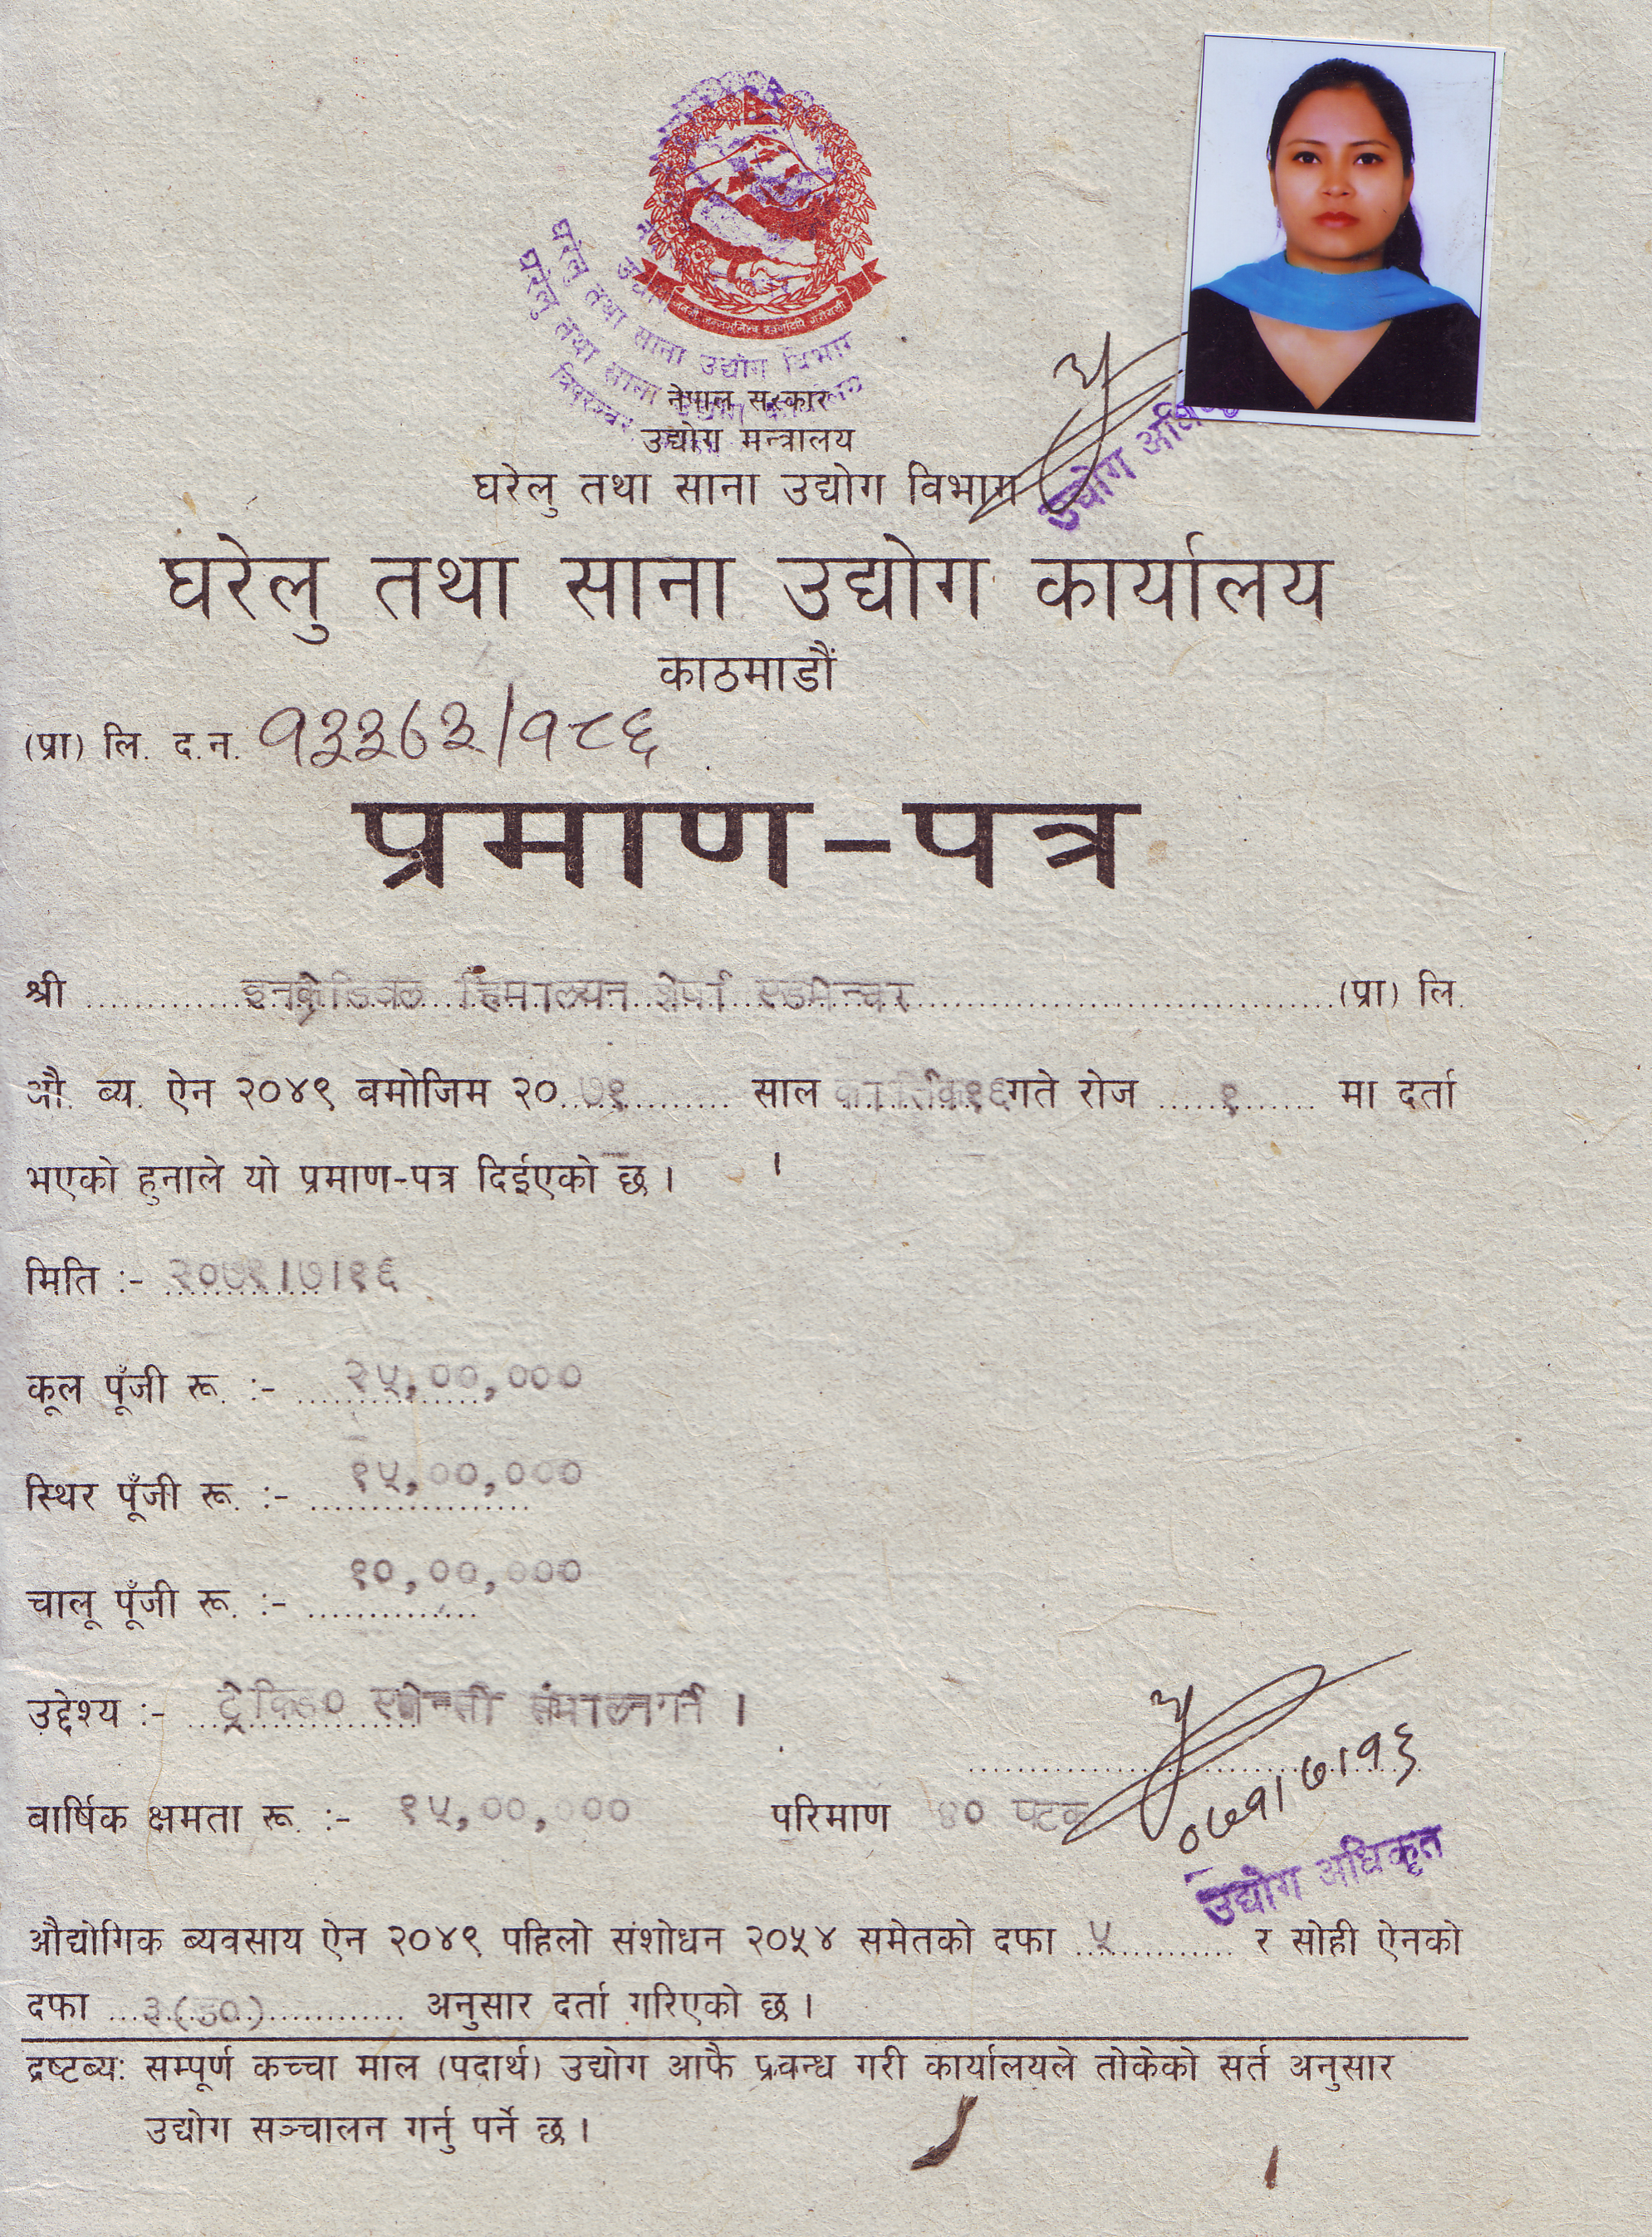 घरेलु तथा साना उद्योग विभाग
घरेलु तथा साना
त्रिपुरेश्वर
नेपाल सरकार
उद्योग मन्त्रालय
घरेलु तथा साना उद्योग विभाग
उद्योग
घरेलु तथा साना उद्योग कार्यालय
काठमाडौं
(प्रा) लि. द.न. १३३८३/१८६
प्रमाण-पत्र
श्री इनक्रेडिवल हिमालयन शेर्पा एडभेन्चर (प्रा) लि.
औ. ब्य. ऐन २०४९ बमोजिम २०७१ साल कार्तिक१६ गते रोज १ मा दर्ता
भएको हुनाले यो प्रमाण-पत्र दिईएको छ ।
मिति :- २०७१।७।१६
कूल पूँजी रू. :- २५,००,०००
स्थिर पूँजी रू. :- १५,००,०००
चालू पूँजी रू. :- १०,००,०००
उद्देश्य :- ट्रेकिङ० एजेन्सी संचालन गर्ने ।
०७१।७।१६
वार्षिक क्षमता रू. :- १५,००,००० परिमाण ४० पटक
उद्योग अधिकृत
औद्योगिक ब्यवसाय ऐन २०४९ पहिलो संशोधन २०५४ समेतको दफा ५ र सोही ऐनको
दफा ३(ङ०) अनुसार दर्ता गरिएको छ ।
द्रष्टब्य: सम्पूर्ण कच्चा माल (पदार्थ) उद्योग आफै प्रवन्ध गरी कार्यालयले तोकेको सर्त अनुसार
उद्योग सञ्चालन गर्नु पर्ने छ ।